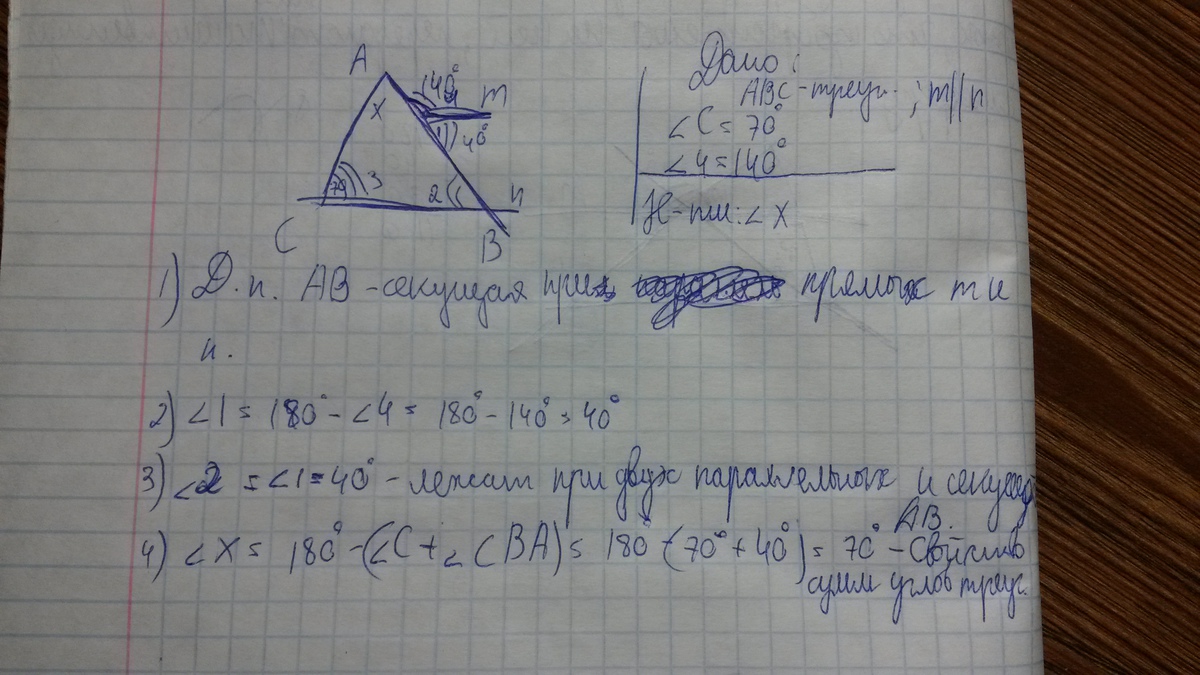 A
X
140°
4
m
1
40°
70
3
2
n
C
B
Дано:
ABC-треуг. ; m||n
∠C=70°
∠4=140°
Н-ти: ∠X
1) Д.п. AB-секущая при прямых m и
n.
2) ∠1 = 180° - ∠4 = 180° - 140° = 40°
3) ∠2 = ∠1 = 40° - лежат при двух параллельных и секущей
AB.
4) ∠X = 180° - (∠C + ∠CBA) = 180 - (70° + 40°) = 70° - свойство
сумм углов треуг.